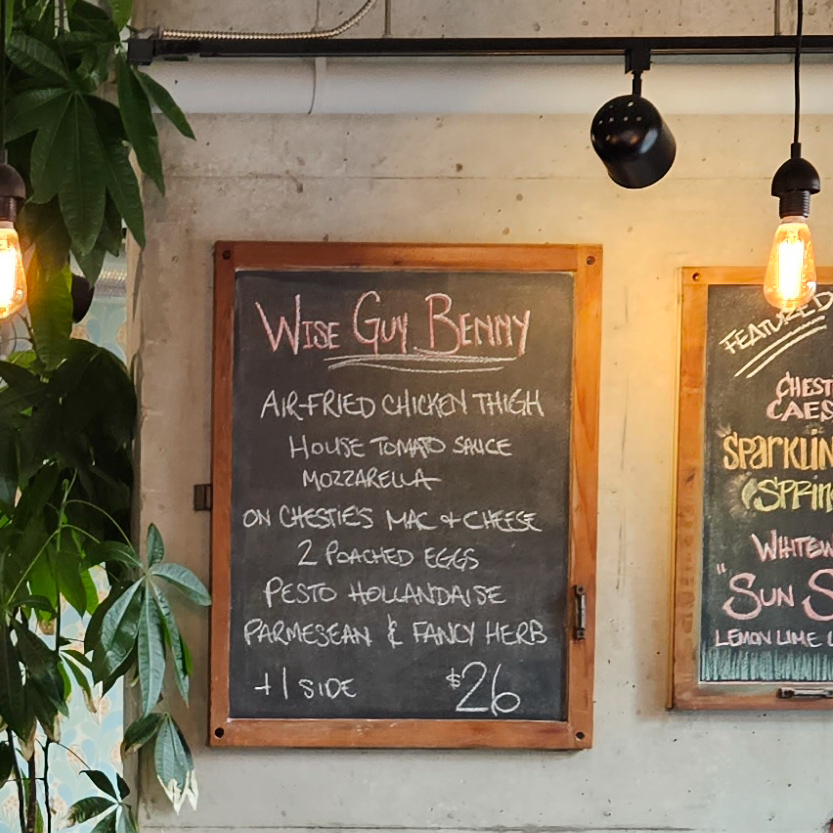 WISE GUY BENNY
AIR-FRIED CHICKEN THIGH
HOUSE TOMATO SAUCE
MOZZARELLA
ON CHESTIE'S MAC & CHEESE
2 POACHED EGGS
PESTO HOLLANDAISE
PARMESEAN & FANCY HERB
+1 SIDE $26
FEATURED
"SUN
LEMON LIME